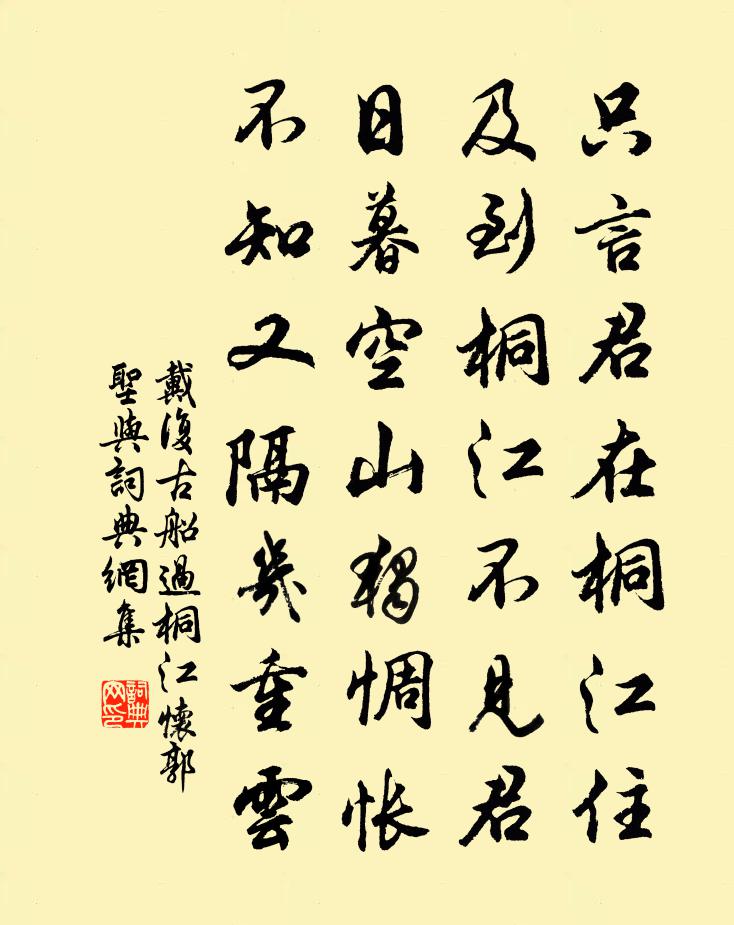 只言君在桐江住
及到桐江不見君
日暮空山獨惆悵
不知又隔幾重雲
戴復古船過桐江懷郭
聖與詞典網集
詞典
网印